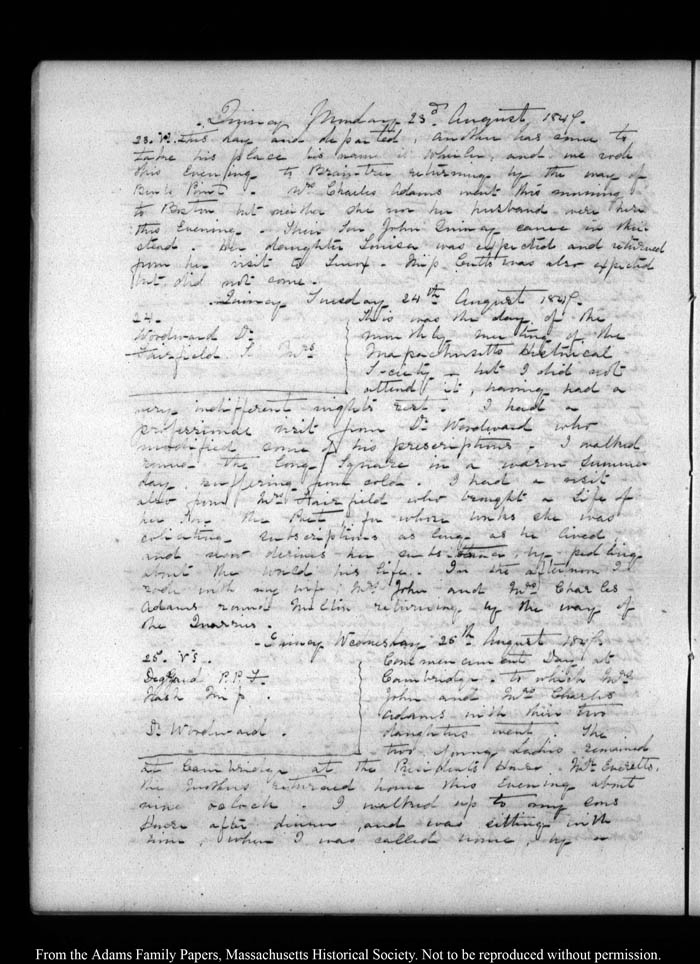 Quincy Monday 23d August, 1847.
23. V. this day and departed, another has come to
take his place his name is Wheeler, and we rode
this Evening to Braintree returning by the way of
Bents Point. Mrs Charles Adams went this morning
to Boston, but neither she nor her husband were here
this Evening. Their Son John Quincy came in their
stead. Her daughter Louisa was expected and returned
from her visit to Lenox. Miss Cutts was also expected
but did not come.
Quincy Tuesday 24th August 1847.
24.
Woodward Dr
Fairfield S. Mrs
This was the day of the
monthly meeting of the
Massachusetts Historical
Society, but I did not
attend it, having had a
very indifferent nights rest. I had a
professional visit from Dr Woodward who
modified some of his prescriptions. I walked
round the long Square in a warm Summer
day, suffering from cold. I had a visit
also from Mrs Fairfield who brought a Life of
her Son the Poet, for whose works she was
collecting subscriptions as long as he lived,
and now derives her subsistence, by pedling
about the world his life. In the afternoon I
rode with my wife, Mrs John and Mrs Charles
Adams round Milton returning by the way of
the Quarries.
Quincy Wednesday 25th August 1847.
25. V.
P. P. F.
Nash Miss.
Dr Woodward.
Commencement Day at
Cambridge. to which Mrs
John and Mrs Charles
Adams with their two
daughters went. The
two young Ladies remained
at Cambridge at the Presidents House. Mr Everetts.
the Mothers returned home this Evening about
nine oclock. I walked up to my Sons
House after dinner, and was sitting with
him, when I was called home, by a
From the Adams Family Papers, Massachusetts Historical Society. Not to be reproduced without permission.